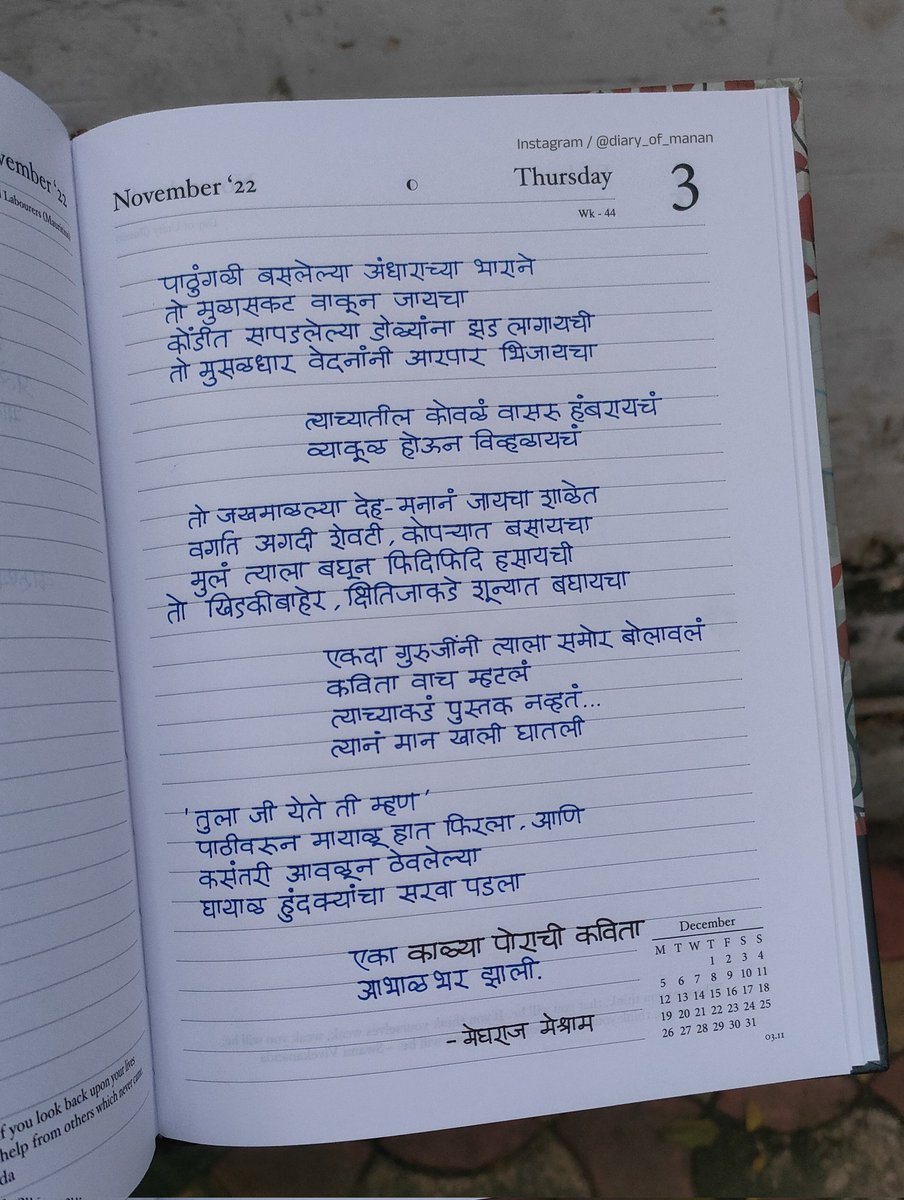 vember '22
l Labourers (Mauritius)
f you look back upon your lives
help from others which never came.
da
Instagram / @diary_of_manan
November '22
Thursday
3
Wk - 44
पाठुंगळी बसलेल्या अंधाराच्या भाराने
तो मुळासकट वाकून जायचा
कोंडीत सापडलेल्या डोळ्यांना झड लागायची
तो मुसळधार वेदनांनी आरपार भिजायचा
त्याच्यातील कोवळं वासरु हंबरायचं
व्याकूळ होऊन विव्हळायचं
तो जखमाळल्या देह-मनानं जायचा शाळेत
वर्गात अगदी शेवटी, कोपऱ्यात बसायचा
मुलं त्याला बघून फिदिफिदि हसायची
तो खिडकीबाहेर, क्षितिजाकडे शून्यात बघायचा
एकदा गुरुजींनी त्याला समोर बोलावलं
कविता वाच म्हटलं
त्याच्याकडं पुस्तक नव्हतं...
त्यानं मान खाली घातली
'तुला जी येते ती म्हण'
पाठीवरून मायाळू हात फिरला, आणि
कसंतरी आवळून ठेवलेल्या
घायाळ हुंदक्यांचा सरवा पडला
एका काळ्या पोराची कविता
आभाळभर झाली.
- मेघराज मेश्राम
December
M T W T F S S
1 2 3 4
5 6 7 8 9 10 11
12 13 14 15 16 17 18
19 20 21 22 23 24 25
26 27 28 29 30 31
03.11